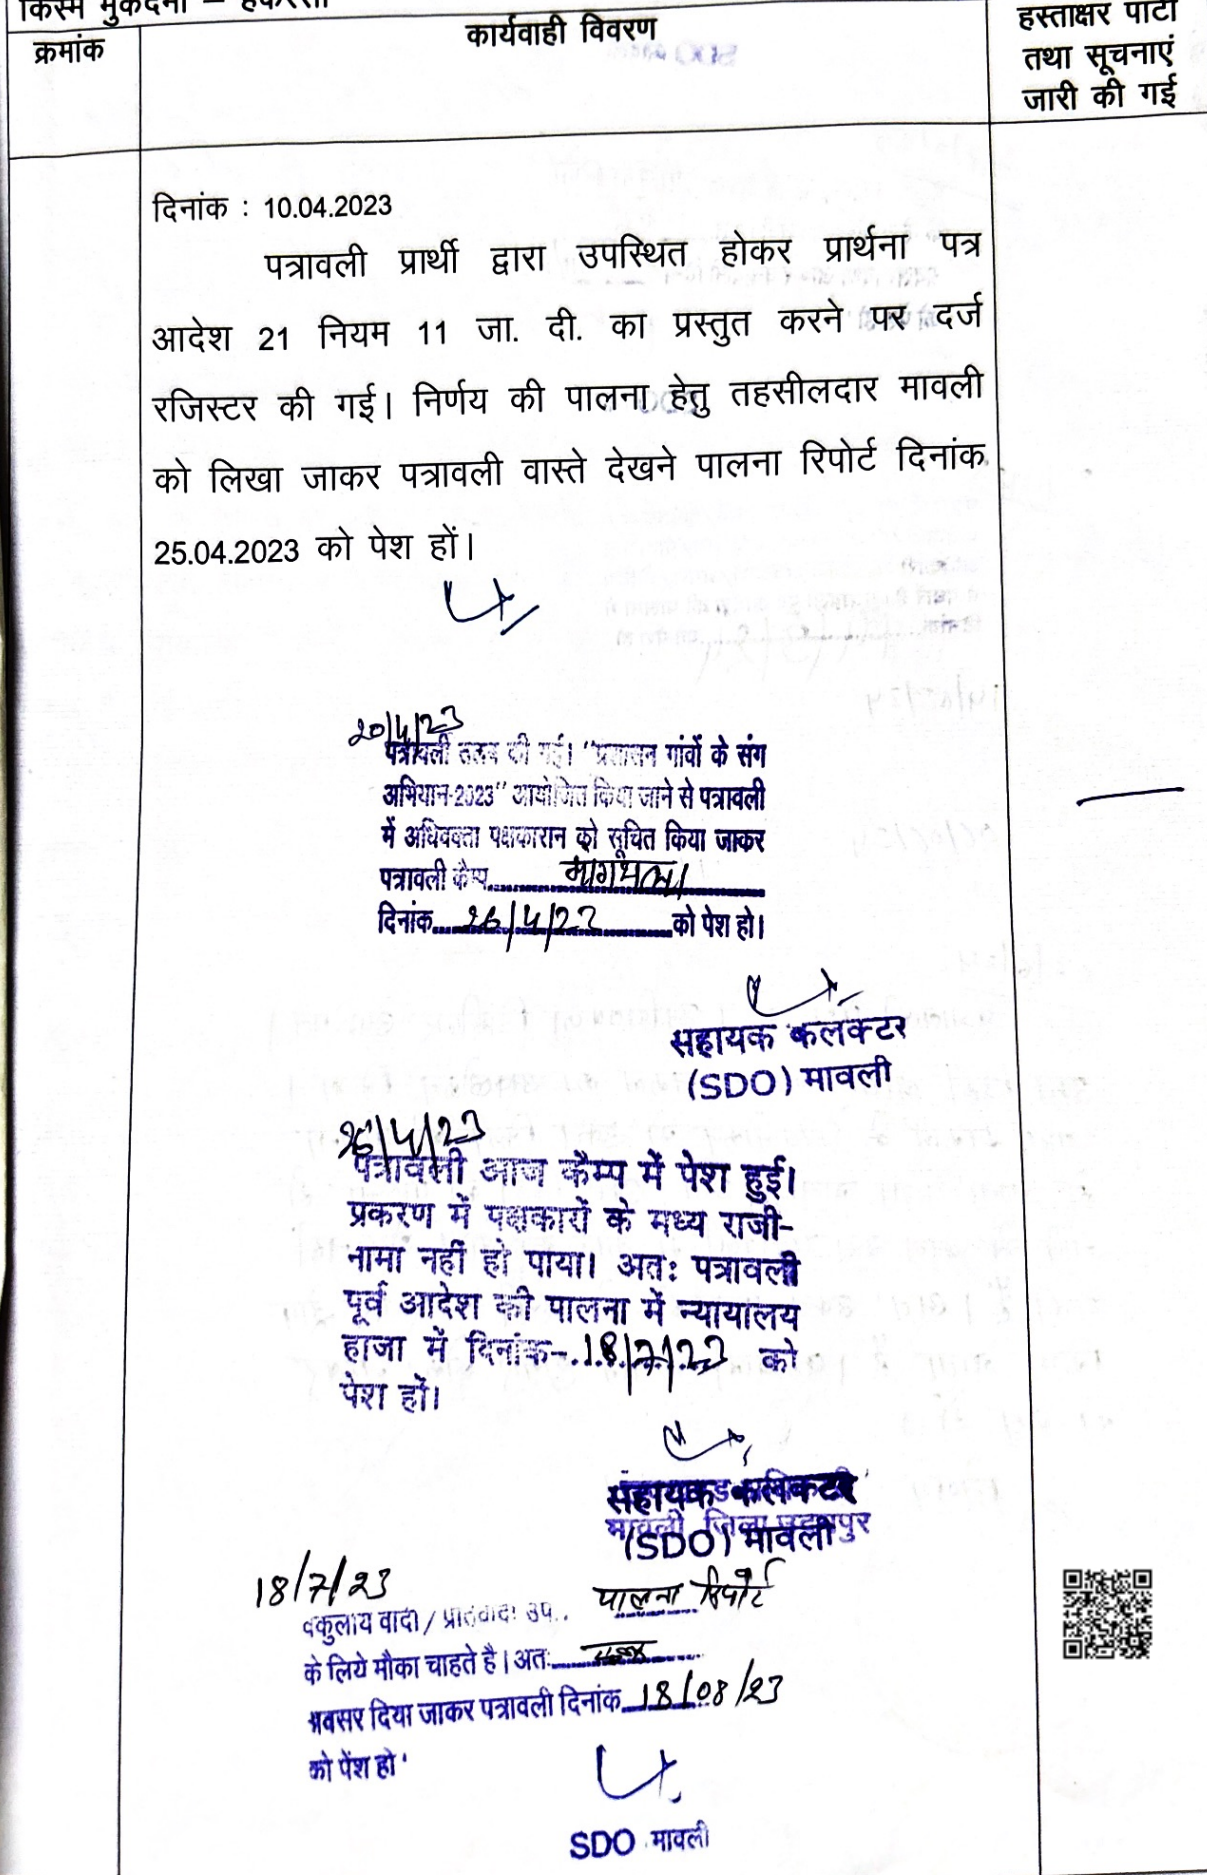 किस्म मुकदमा –
क्रमांक
कार्यवाही विवरण
हस्ताक्षर पार्टी
तथा सूचनाएं
जारी की गई
दिनांक : 10.04.2023
पत्रावली प्रार्थी द्वारा उपस्थित होकर प्रार्थना पत्र
आदेश 21 नियम 11 जा. दी. का प्रस्तुत करने पर दर्ज
रजिस्टर की गई। निर्णय की पालना हेतु तहसीलदार मावली
को लिखा जाकर पत्रावली वास्ते देखने पालना रिपोर्ट दिनांक
25.04.2023 को पेश हों।
20/4/23
पत्रावली तलब की गई। "प्रशासन गांवों के संग
अभियान-2023" आयोजित किया जाने से पत्रावली
में अधिवक्ता पक्षकारान को सूचित किया जाकर
पत्रावली कैम्प
दिनांक 26/4/23 को पेश हो।
सहायक कलेक्टर
(SDO) मावली
26/4/23
पत्रावली आज कैम्प में पेश हुई।
प्रकरण में पक्षकारों के मध्य राजी-
नामा नहीं हो पाया। अतः पत्रावली
पूर्व आदेश की पालना में न्यायालय
हाजा में दिनांक-18/7/23 को
पेश हों।
सहायक कलेक्टर
(SDO) मावली
मावली जिला उदयपुर
18/7/23
वकुलाय वादी / प्रतिवादी उप.. पालना रिपोर्ट
के लिये मौका चाहते है। अतः
अवसर दिया जाकर पत्रावली दिनांक 18/08/23
को पेंश हो
SDO मावली